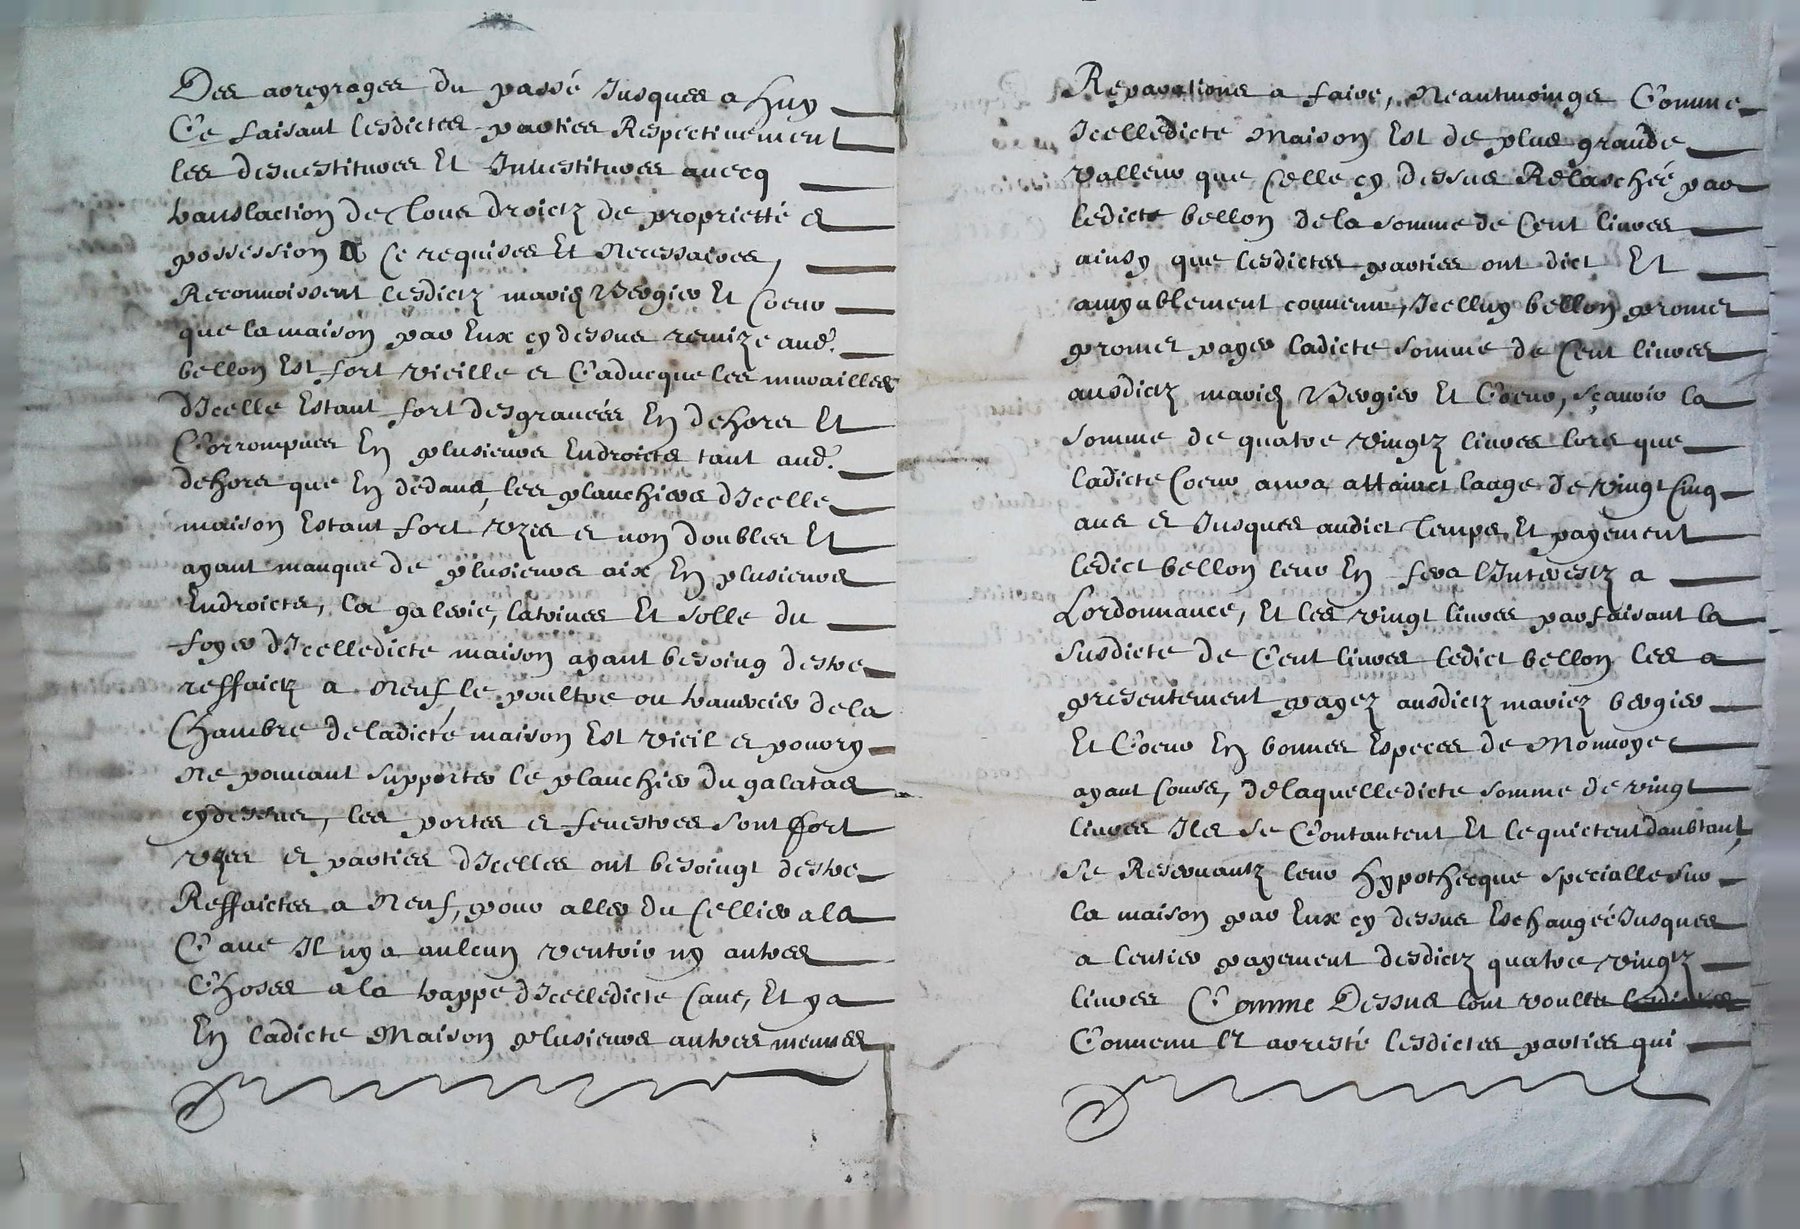 Des arreyrages du passé Jusques a huy
Ce faisant lesdictes parties Respectiuement
les desuestitures Et Inuestitures auecq
translaction de tous droictz de proprietté et
possession A Ce requises Et Necessaires,
Reconnoissent lesdictz mariez Vergier Et Coeur
que la maison par Eux cy dessus remize aud.
bellon Est fort vieille et Caducque les murailles
d'Icelle Estant fort desgrauées En dehors Et
Corrompues En plusieurs Endroictz tant aud.
dehors que En dedans, les planchiers d'Icelle
maison Estant fort vzés et non doubles Et
ayant manque de plusieurs aix En plusieurs
Endroicts, la galerie, latrines Et solle du
foyer d'Icelledicte maison ayant besoing destre
reffaictz a Neuf, le poultre ou trauersier de la
Chambre de ladicte maison Est vieil et pourry
Ne pouuant supporter le planchier du galatas
cydessus, les portes et fenestres sont fort
vzées et parties d'Icelles ont besoingt destre
Reffaictes a Neuf, pour aller du Cellier a la
Caue Il ny a aulcun ventoir ny autres
Choses a la trappe d'Icelledicte Caue, Et y a
En ladicte Maison plusieurs autres menues
Reparations a faire, Neantmoings Comme
Icelledicte Maison Est de plus grande
valleur que Celle cy dessus Relaschée par
ledicte bellon de la somme de Cent liures
ainsy que lesdictes parties ont dict Et
amyablement conuenu, Icelluy bellon promet
promet payer ladicte somme de Cent liures
ausdictz mariez Vergier Et Coeur, sçauoir la
somme de quatre vingtz liures lors que
ladicte Coeur aura attainct laage de vingt Cinq
ans et Jusques audict temps Et payement
ledict bellon leur En fera l'Interestz a
Lordonnance, Et les vingt liures parfaisant la
susdicte de Cent liures ledict bellon les a
presentement payez ausdictz mariez bergier
Et Coeur En bonnes Especes de Monnoye
ayant Cours, de laquelledicte somme de vingt
liures Ils se Contantent Et le quictent daubtant,
Se Reseruantz leur Hypothecque specialle sur
la maison par Eux cy dessus Eschangée Jusques
a lentier payement desdictz quatre vingtz
liures Comme Dessus tout voullu
Conuenu Et arresté lesdictes parties qui